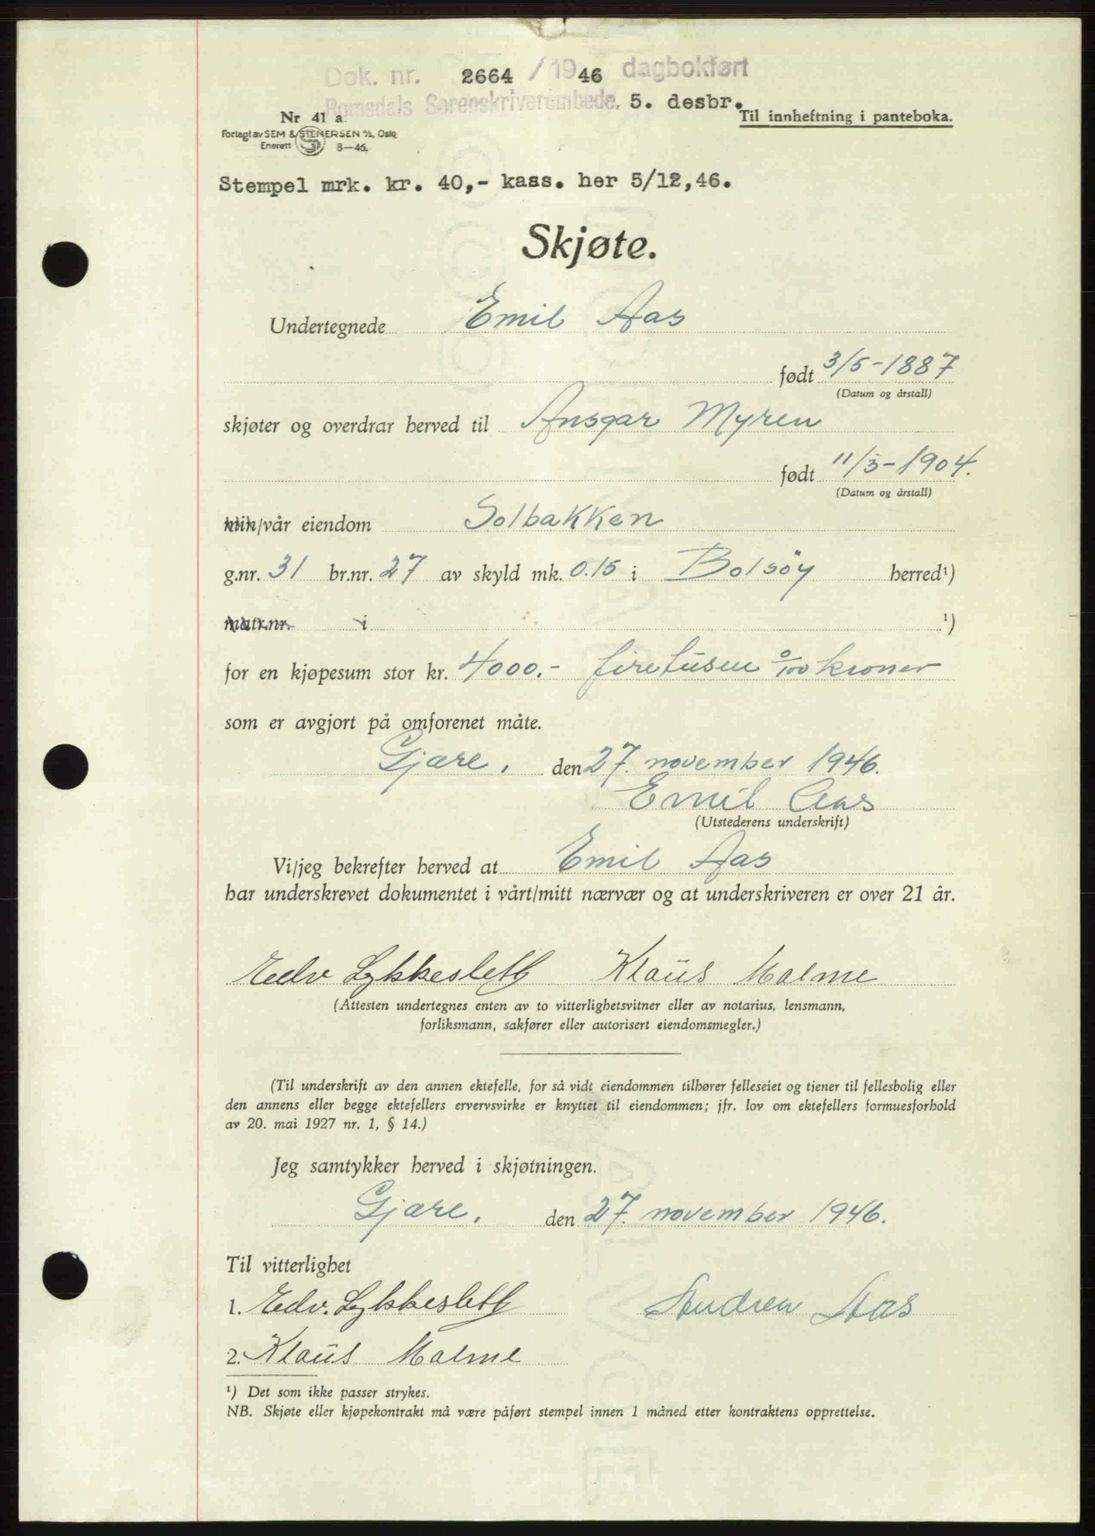 Dok. nr. 2664 / 1946 dagbokført
Romsdals Sorenskriverembede, 5. desbr.
Nr 41 a
Til innheftning i panteboka.
Forlagt av SEM & STENERSEN A/S, Oslo
Enerett 8—46.
Stempel mrk. kr. 40,- kass. her 5/12,46.
Skjøte.
Undertegnede Emil Aas
født 3/5-1887
(Datum og årstall)
skjøter og overdrar herved til Ansgar Myren
født 11/3-1904.
(Datum og årstall)
min/vår eiendom Solbakken
g.nr. 31 br.nr. 27 av skyld mk. 0.15 i Bolsöy herred¹)
matr.nr. i ¹)
for en kjøpesum stor kr. 4000.- firetusen 0/100 kroner
som er avgjort på omforenet måte.
Gjære, den 27. november 1946.
Emil Aas
(Utstederens underskrift)
Vi/jeg bekrefter herved at Emil Aas
har underskrevet dokumentet i vårt/mitt nærvær og at underskriveren er over 21 år.
Edv. Lykkeslett Klaus Malme
(Attesten undertegnes enten av to vitterlighetsvitner eller av notarius, lensmann,
forliksmann, sakfører eller autorisert eiendomsmegler.)
(Til underskrift av den annen ektefelle, for så vidt eiendommen tilhører felleseiet og tjener til fellesbolig eller
den annens eller begge ektefellers ervervsvirke er knyttet til eiendommen; jfr. lov om ektefellers formuesforhold
av 20. mai 1927 nr. 1, § 14.)
Jeg samtykker herved i skjøtningen.
Gjære, den 27. november 1946.
Til vitterlighet
1. Edv. Lykkeslett
Aas
2. Klaus Malme
¹) Det som ikke passer strykes.
NB. Skjøte eller kjøpekontrakt må være påført stempel innen 1 måned etter kontraktens opprettelse.